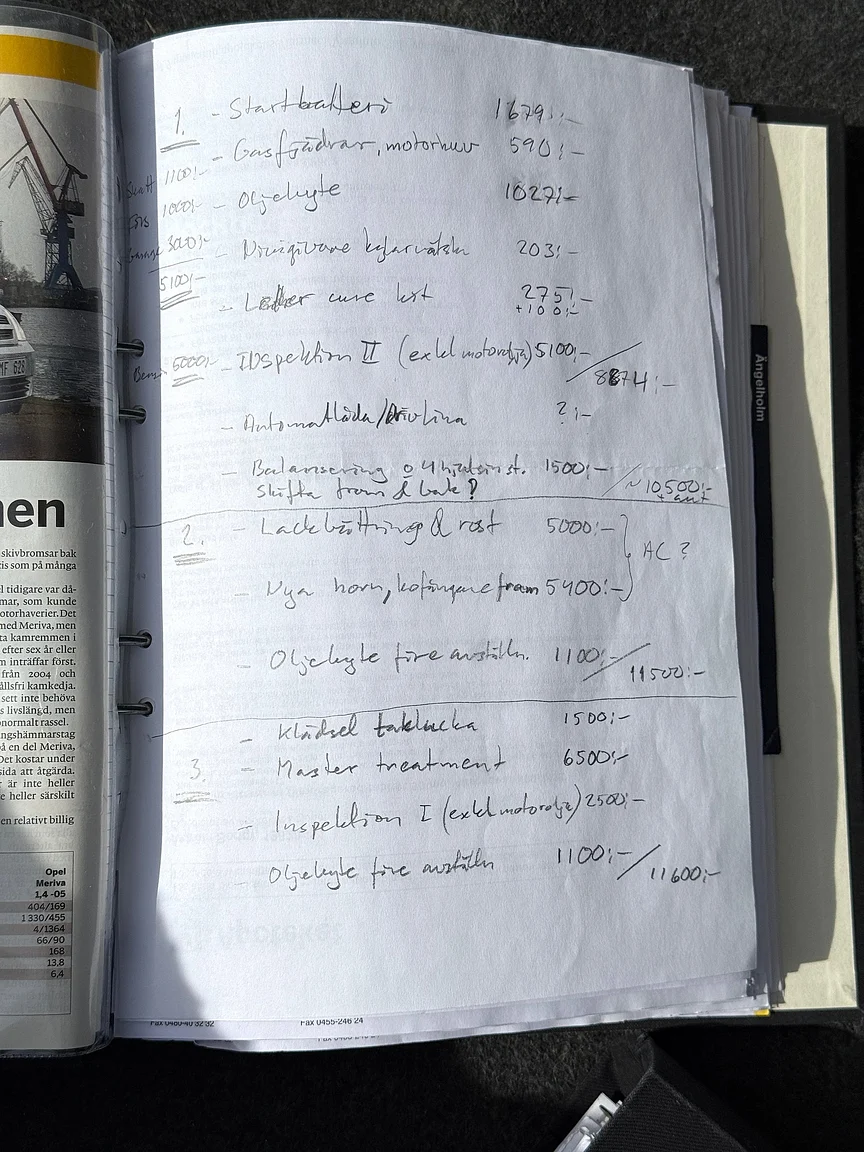 1. - Startbatteri 1679:-
- Gasfjädrar, motorhuv 590:-
Skatt 1100:-
- Oljebyte 1027:-
Förs 1000:-
Garage 3000:-
- Nivågivare kylarvätska 203:-
5100:-
- Leather cure kit 275:-
+100:-
Bensin 5000:-
- INspektion II (exkl motorolja) 5100:-
8874:-
- Automatlåda/Drivlina ?:-
- Balansering o 4 hjulsinst. 1500:-
skifta fram & bak?
~10,500:-
+ aut
2. - Lackbättring & rost 5000:-
AC?
- Nya horn, kofångare fram 5400:-
- Oljebyte före avställn. 1100:-
11500:-
- Klädsel taklucka 1500:-
3. - Master treatment 6500:-
- Inspektion I (exkl motorolja) 2500:-
- Oljebyte före avställn 1100:-
11600:-
Ängelholm
MF 628
nen
skivbromsar bak
cis som på många
l tidigare var då-
mar, som kunde
otorhaverier. Det
ned Meriva, men
ta kamremmen i
efter sex år eller
m inträffar först.
från 2004 och
ållsfri kamkedja.
sett inte behöva
s livslängd, men
normalt rassel.
ngshämmarstag
å en del Meriva,
Det kostar under
sida att åtgärda.
r är inte heller
e heller särskilt
en relativt billig
Opel
Meriva
1,4 -05
404/169
1 330/455
4/1364
66/90
168
13,8
6,4
Fax 0480-40 32 32
Fax 0455-246 24